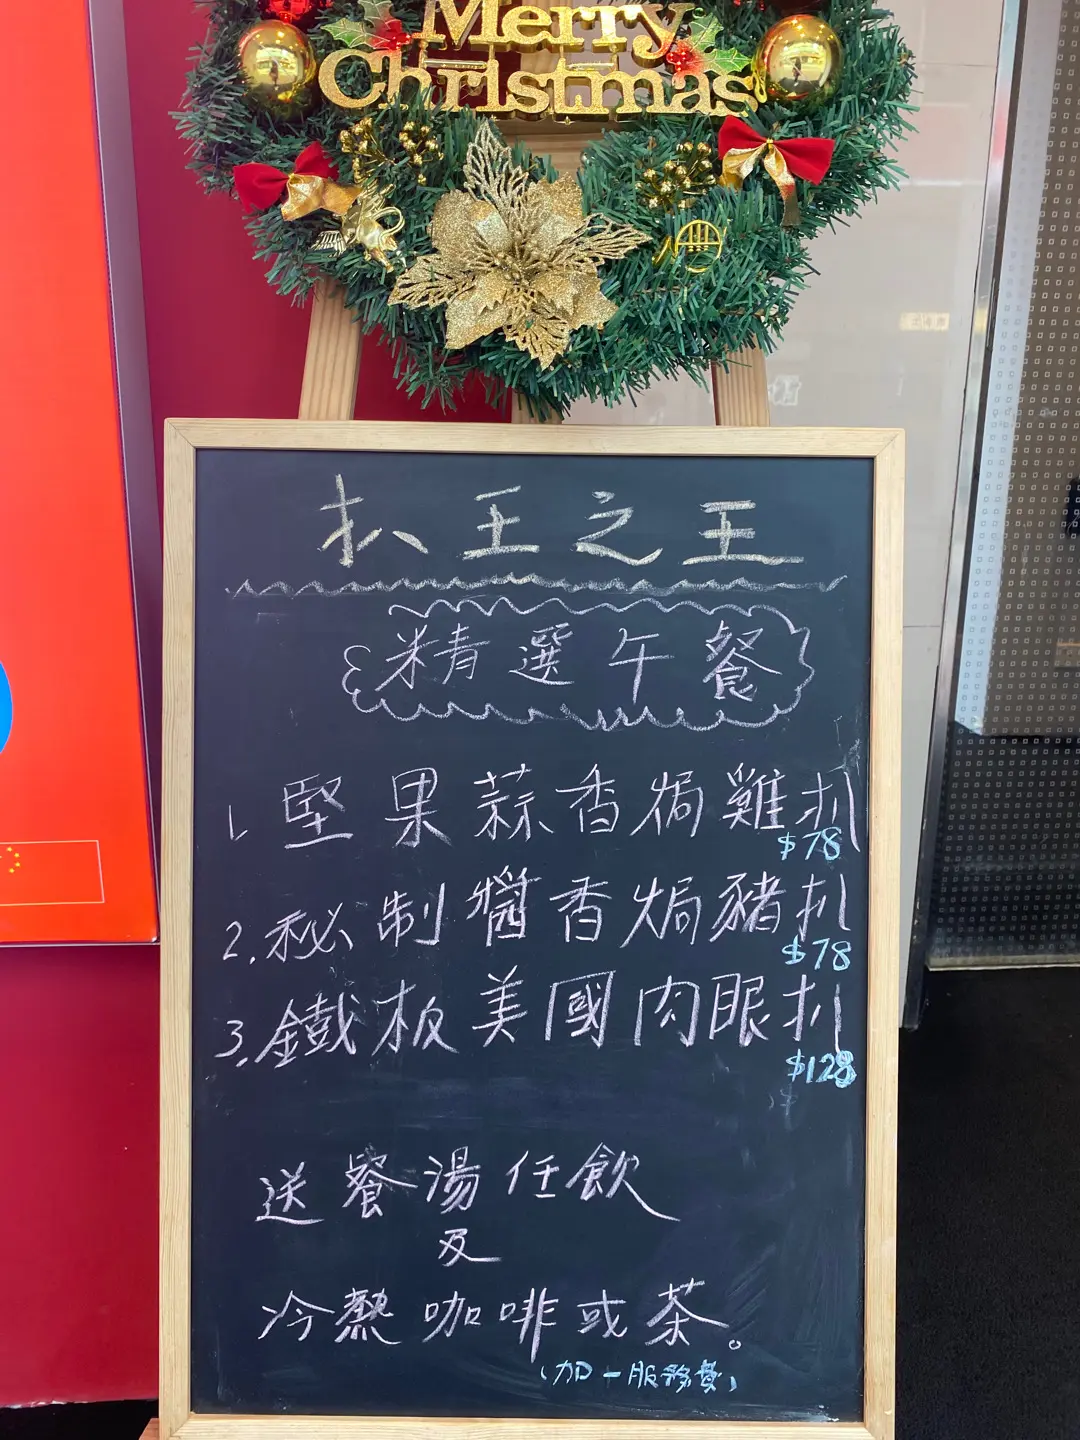 Merry
Christmas
扒王之王
精選午餐
1. 堅果蒜香焗雞扒
$78
2. 秘制醬香焗豬扒
$78
3. 鐵板美國肉眼扒
$128
$
送餐湯任飲
及
冷熱咖啡或茶。
(加一服務費)